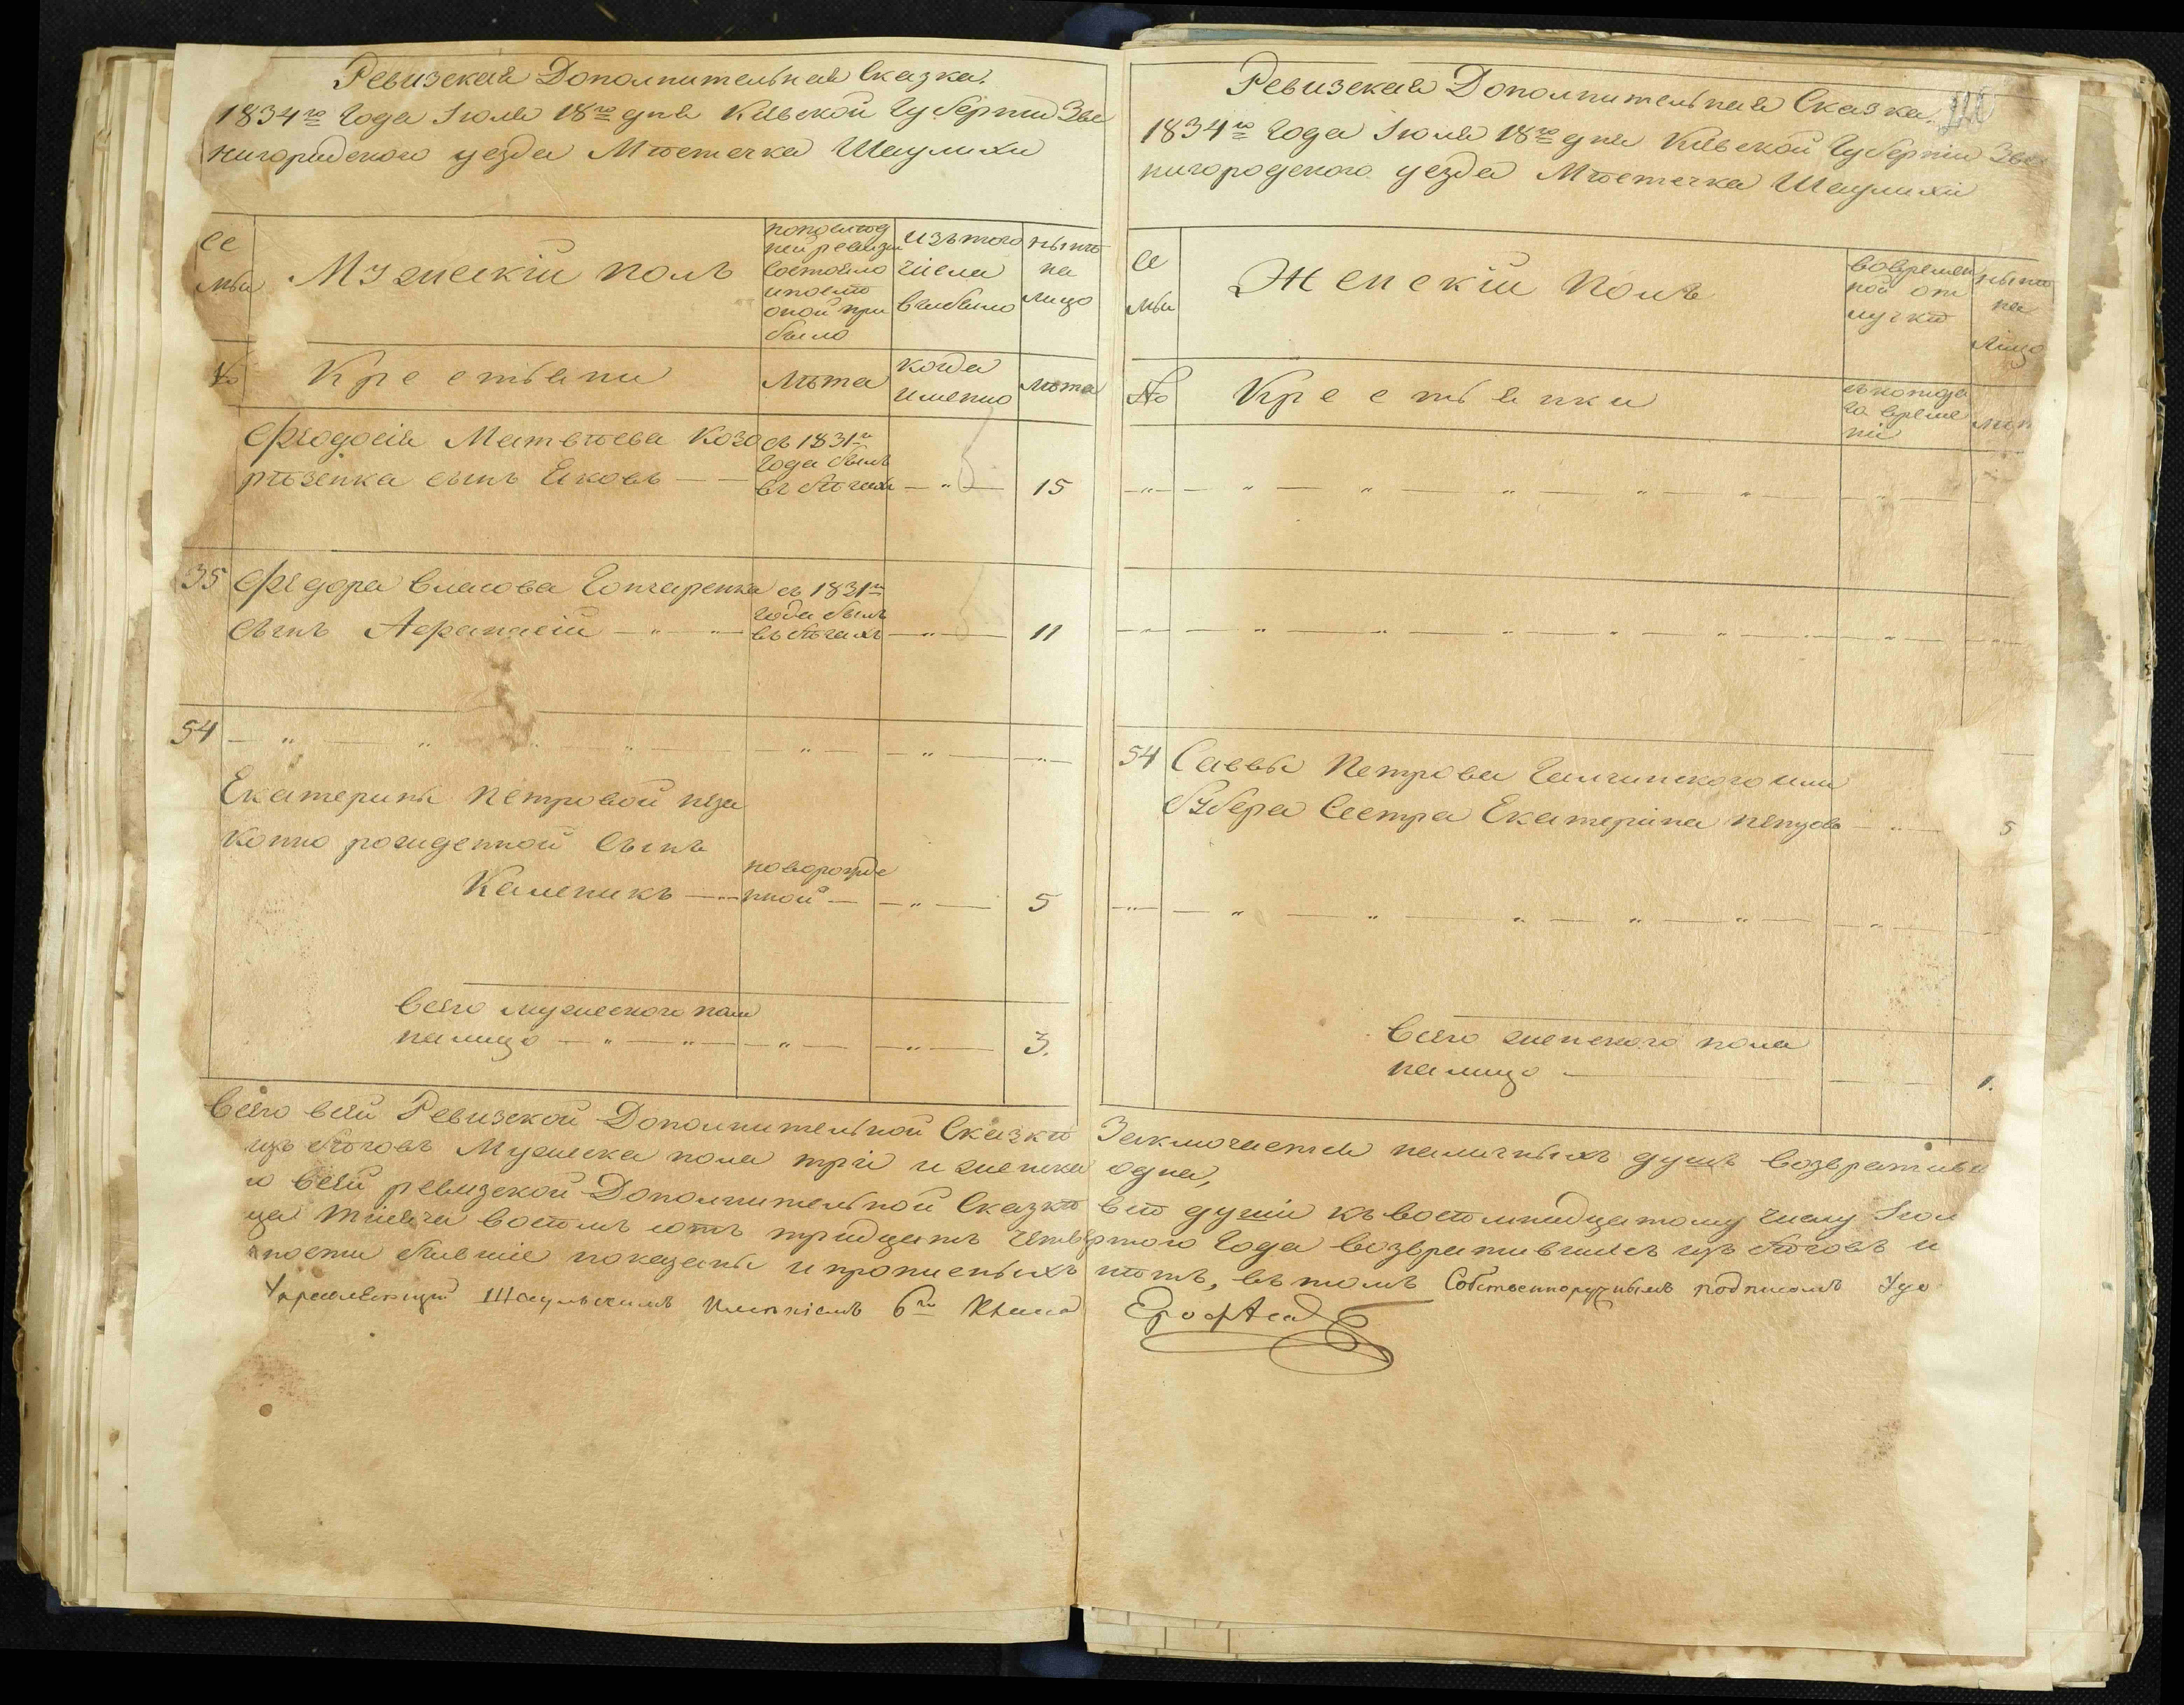 Ревизская Дополнительная Сказка.
1834го Года Июля 18го дня Киевской Губернии Зве
нигородского уезда Мѣстечка Шаулихи
се
мьи
Мужескій полъ
попослѣд
ней ревизіи
состояло
ипослѣ
оной при
было
изътого
числа
выбыло
нынѣ
на
лицо
№
Крестьяни
лѣта
когда
именно
лѣта
Ѳеодосія Матвѣева Козо
рѣзенка сынъ Яковъ
съ 1831го
года былъ
въ бѣгахъ
15
35
Ѳедора Власова Гончаренка
сынъ Афанасій
съ 1831го
года былъ
въ бѣгахъ
11
54
Екатерины Петровой неза
конно рожденной сынъ
Каленикъ
новорожде
нной
5
Всего мужеского пола
налицо
3.
Ревизская Дополнительная Сказка.
1834го Года Июля 18го дня Киевской Губерніи Зве
нигородского уезда Мѣстечка Шаулихи
се
мьи
Женскій полъ
вовремен
ной от
лучкѣ
нынѣ
на
лицо
№
Крестьянки
съкотора
го време
ни
54
Саввы Петрова
Сестра Екатерина
5
Всего женского пола
налицо
1.
Всего всей Ревизской Дополнительной Сказкѣ Заключается наличныхъ душъ возвратив
изъ бѣговъ Мужеска пола три и женска одна,
всей ревизской Дополнительной Сказкѣ всѣ души къ восѣмнадцатому числу Июл
тысяча восѣмъ сотъ тридцать четвертого Года возвратившиесь изъ бѣговъ и
ности бывшіе показаны и прописныхъ нѣтъ, въ томъ Собственноручнымъ подписомъ Удо
Управляющій Шаульскимъ Имѣніемъ